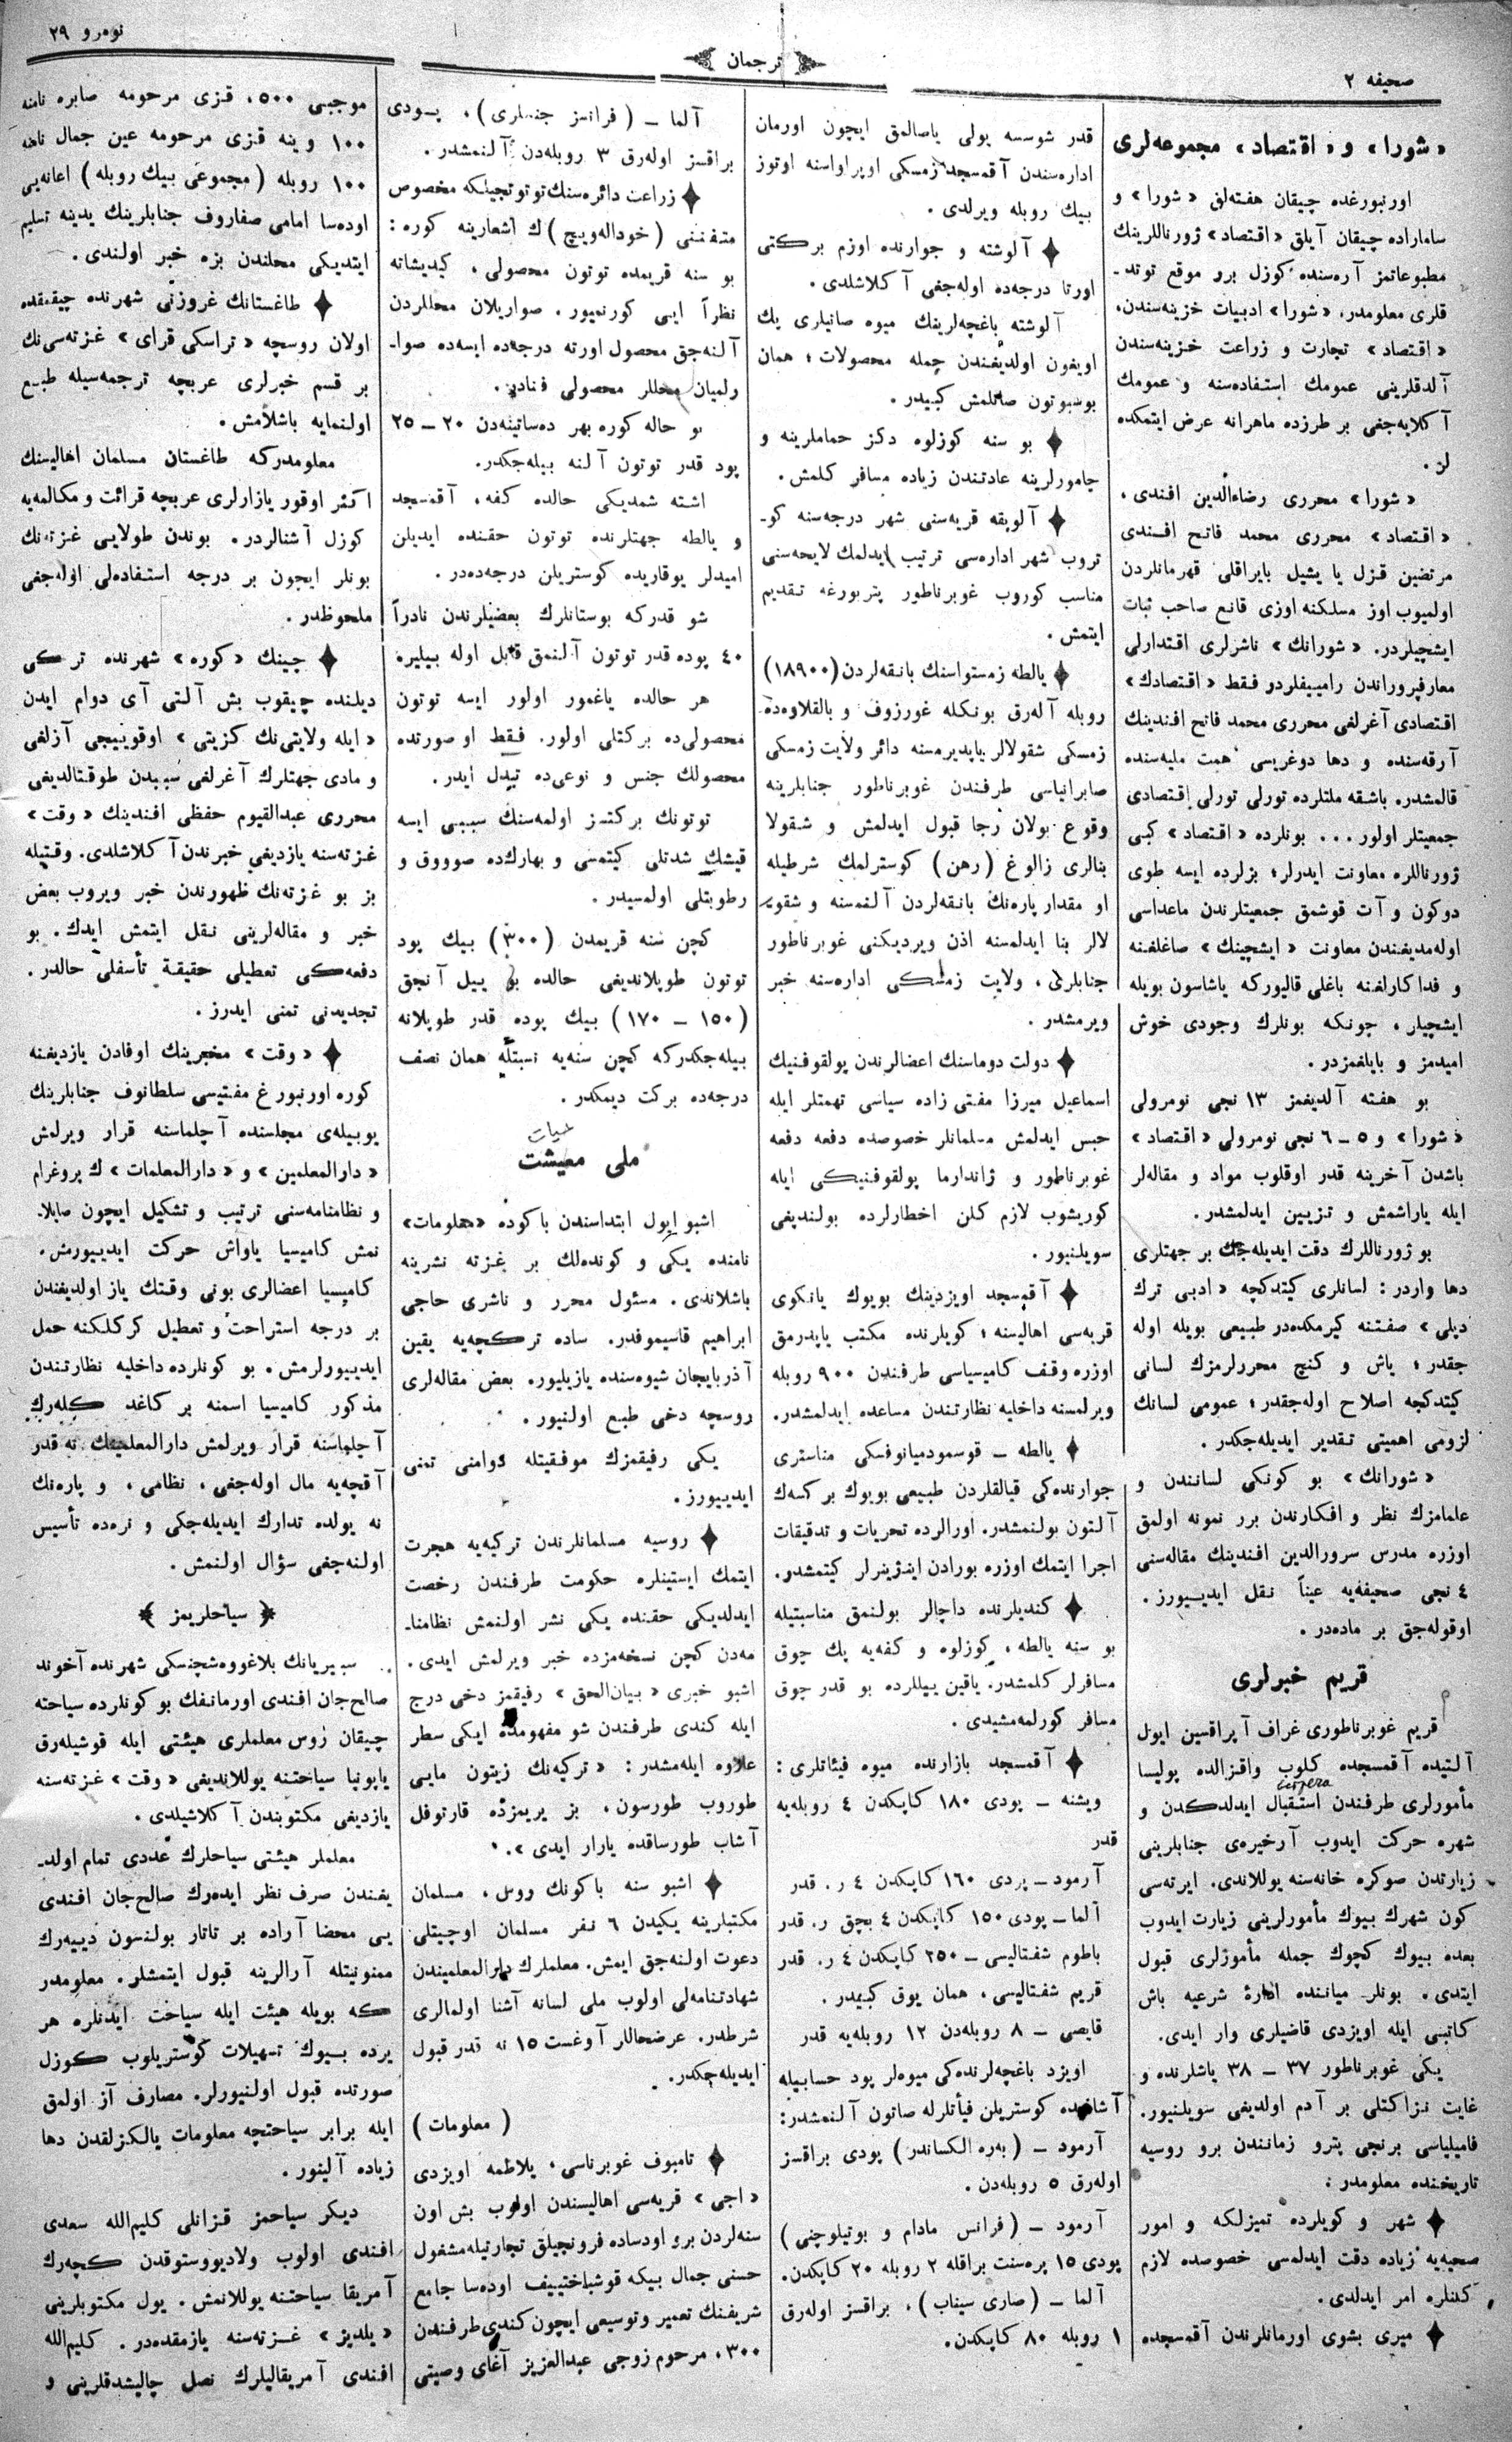 صحیفه ٢
ترجمان
نومرو ٢٩
«شورا» و «اقتصاد» مجموعه‌لری
اورنبورغده چیقان هفته‌لق «شورا» و
ساماراده چیقان آیلق «اقتصاد» ژورناللرینك
مطبوعاتمز آره‌سنده كوزل برر موقع توتد-
قلری معلومدر. «شورا» ادبیات خزینه‌سندن،
«اقتصاد» تجارت و زراعت خزینه‌سندن
آلدقلرینی عمومك استفاده‌سنه و عمومك
آكلایه‌جغی بر طرزده ماهرانه عرض ایتمكده
لر.
«شورا» محرری رضاءالدین افندی،
«اقتصاد» محرری محمد فاتح افندی
مرتضین قزل یا یشیل بایراقلی قهرمانلردن
اولمیوب اوز مسلكنه اوزی قانع صاحب ثبات
ایشچیلردر. «شورانك» ناشرلری اقتدارلی
معارفپروراندن رامییفلردر فقط «اقتصادك»
اقتصادی آغرلغی محرری محمد فاتح افندینك
آرقه‌سنده و دها دوغریسی همت ملیه‌سنده
قالمشدر. باشقه ملتلرده تورلی تورلی اقتصادی
جمعیتلر اولور... بونلرده «اقتصاد» كبی
ژورناللره معاونت ایدرلر؛ بزلرده ایسه طوی
دوكون و آت قوشمق جمعیتلرندن ماعداسی
اوله‌مدیغندن معاونت «ایشچینك» صاغلغنه
و فداكارلغنه باغلی قالیوركه یاشاسون بویله
ایشچیلر، چونكه بونلرك وجودی خوش
امیدمز و بایلغمزدر.
بو هفته آلدیغمز ١٣ نجی نومرولی
«شورا» و ٥-٦ نجی نومرولی «اقتصاد»
باشدن آخرینه قدر اوقلوب مواد و مقاله‌لر
ایله یاراشمش و تزیین ایدلمشدر.
بو ژورناللرك دقت ایدیله‌جك بر جهتلری
دها واردر: لسانلری كیتدكچه «ادبی ترك
دیلی» صفتنه كیرمكده‌در طبیعی بویله اوله
جقدر؛ یاش و كنج محررلرمزك لسانی
كیتدكجه اصلاح اوله‌جقدر؛ عمومی لسانك
لزومی اهمیتی تقدیر ایدیله‌جكدر.
«شورانك» بو كونكی لسانندن و
علمامزك نظر و افكارندن برر نمونه اولمق
اوزره مدرس سرورالدین افندینك مقاله‌سنی
٤ نجی صحیفه‌یه عیناً نقل ایدییورز.
اوقوله‌جق بر ماده‌در.
قریم خبرلری
قریم غوبرناطوری غراف آپراقسین ایول
آلتیده آقمسجده كلوب واقزالده پولیسا
مأمورلری طرفندن استقبال ایدلدكدن و
شهره حركت ایدوب آرخیره‌ی جنابلرینی
زیارتدن صوكره خانه‌سنه یوللاندی. ایرته‌سی
كون شهرك بیوك مأمورلرینی زیارت ایدوب
بعده بیوك كچوك جمله مأمورلری قبول
ایتدی. بونلر میاننده ادارۀ شرعیه باش
كاتبی ایله اویزدی قاضیلری وار ایدی.
یكی غوبرناطور ٣٧ - ٣٨ یاشلرنده و
غایت نزاكتلی بر آدم اولدیغی سویلنیور.
فامیلیاسی برنجی پترو زمانندن برو روسیه
تاریخنده معلومدر.
شهر و كویلرده تمیزلكه و امور
صحیه‌یه زیاده دقت ایدلمسی خصوصده لازم
كلنلره امر ایدلدی.
میری بشوی اورمانلرندن آقمسجده
قدر شوسسه یولی یاصالمق ایچون اورمان
اداره‌سندن آقمسجد زمسكی اوپراواسنه اوتوز
بیك روبله ویرلدی.
آلوشته و جوارنده اوزم بركتی
اورتا درجه‌ده اوله‌جغی آكلاشلدی.
آلوشته باغچه‌لرینك میوه صاتیلری یك
اویغون اولدیغندن جمله محصولات؛ همان
بوسبوتون صاتلمش كبیدر.
بو سنه كوزلوه دكز حماملرینه و
جامورلرینه عادتندن زیاده مسافر كلمش.
آلوپقه قریه‌سنی شهر درجه‌سنه كو-
تروب شهر اداره‌سی ترتیب ایدلمك لایحه‌سنی
مناسب كوروب غوبرناطور پتربورغه تقدیم
ایتمش.
یالطه زمستواسنك بانقه‌لردن (١٨٩٠٠)
روبله آله‌رق بونكله غورزوف و بالقلاوه‌ده
زمسكی شقولالر یاپدیرمسنه دائر ولایت زمسكی
صابرانیاسی طرفندن غوبرناطور جنابلرینه
وقوع بولان رجا قبول ایدلمش و شقولا
بنالری زالوغ (رهن) كوسترلمك شرطیله
او مقدار پاره‌نك بانقه‌لردن آلنمسنه و شقو-
لالر بنا ایدلمسنه اذن ویردیكنی غوبرناطور
جنابلری، ولایت زمسكی اداره‌سنه خبر
ویرمشدر.
دولت دوماسنك اعضالرندن پولقوفنیك
اسماعیل میرزا مفتی زاده سیاسی تهمتلر ایله
حبس ایدلمش مسلمانلر خصوصده دفعه دفعه
غوبرناطور و ژاندارما پولقوفنیكی ایله
كوریشوب لازم كلن اخطارلرده بولندیغی
سویلنیور.
آقمسجد اویزدینك بویوك یانكوی
قریه‌سی اهالیسنه؛ كویلرنده مكتب یاپدرمق
اوزره وقف كامیسیاسی طرفندن ٩٠٠ روبله
ویرلمسنه داخلیه نظارتندن مساعده ایدلمشدر.
یالطه - قوسمودمیانوفسكی مناستری
جوارنده‌كی قیالقلردن طبیعی بویوك بر كسه‌ك
آلتون بولنمشدر. اورالرده تحریات و تدقیقات
اجرا ایتمك اوزره بورادن اینژینرلر كیتمشدر.
كندیلرنده داچالر بولنمق مناسبتیله
بو سنه یالطه، كوزلوه و كفه‌یه یك چوق
مسافرلر كلمشدر. یاقین ییللرده بو قدر چوق
مسافر كورلمه‌مشیدی.
آقمسجد بازارنده میوه فیئاتلری:
ویشنه - پودی ١٨٠ كاپكدن ٤ روبله‌یه
قدر
آرمود - پودی ١٦٠ كاپكدن ٤ ر. قدر
آلما - پودی ١٥٠ كاپكدن ٤ بچق ر. قدر
باطوم شفتالیسی - ٢٥٠ كاپكدن ٤ ر. قدر
قریم شفتالیسی، همان یوق كبیدر.
قایصی - ٨ روبله‌دن ١٢ روبله‌یه قدر
اویزد باغچه‌لرنده‌كی میوه‌لر پود حسابیله
آشاغیده كوستریلن فیأتلرله صاتون آلنمشدر:
آرمود - (به‌ره الكساندر) پودی براقسز
اوله‌رق ٥ روبله‌دن.
آرمود - (فرانس مادام و بوتیلوچنی)
پودی ١٥ پره‌سنت براقله ٢ روبله ٢٠ كاپكدن.
آلما - (صاری سیناپ)، براقسز اوله‌رق
١ روبله ٨٠ كاپكدن.
آلما - (فرانسز جنسلری)، پودی
براقسز اوله‌رق ٣ روبله‌دن آلنمشدر.
زراعت دائره‌سنك توتونجیلكه مخصوص
متفننی (خوداله‌ویچ)ك اشعارینه كوره:
بو سنه قریمده توتون محصولی، كیدیشاته
نظراً ایی كورنمیور. صواریلان محللردن
آلنه‌جق محصول اورته درجه‌ده ایسه‌ده صوا-
رلمیان محللر محصولی فنادر.
بو حاله كوره بهر ده‌ساتینه‌دن ٢٠ - ٢٥
پود قدر توتون آلنه بیله‌جكدر.
اشته شمدیكی حالده كفه، آقمسجد
و یالطه جهتلرنده توتون حقنده ایدیلن
امیدلر یوقاریده كوستریلن درجه‌ده‌در.
شو قدركه بوستانلرك بعضیلرندن نادراً
٤٠ پوده قدر توتون آلنمق قابل اوله بیلیر.
هر حالده یاغمور اولور ایسه توتون
محصولی‌ده بركتلی اولور. فقط او صورتده
محصولك جنس و نوعی‌ده تبدل ایدر.
توتونك بركتسز اولمه‌سنك سببی ایسه
قیشك شدتلی كیتمسی و بهارك‌ده صوووق و
رطوبتلی اولمسیدر.
كچن سنه قریمدن (٣٠٠) بیك پود
توتون طوپلاندیغی حالده بو ییل آنجق
(١٥٠ - ١٧٠) بیك پوده قدر طوپلانه
بیله‌جكدركه كچن سنه‌یه نسبتله همان نصف
درجه‌ده بركت دیمكدر.
ملی معیشت
اشبو ایول ابتداسندن باكوده «معلومات»
نامنده یكی و كونده‌لك بر غزته نشرینه
باشلاندی. مسئول محرر و ناشری حاجی
ابراهیم قاسیموفدر. ساده تركچه‌یه یقین
آذربایجان شیوه‌سنده یازیلیور. بعض مقاله‌لری
روسچه دخی طبع اولنیور.
یكی رفیقمزك موفقیتله دوامنی تمنی
ایدییورز.
روسیه مسلمانلرندن تركیه‌یه هجرت
ایتمك ایستینلره حكومت طرفندن رخصت
ایدلدیكی حقنده یكی نشر اولنمش نظامنا-
مه‌دن كچن نسخه‌مزده خبر ویرلمش ایدی.
اشبو خبری «بیان‌الحق» رفیقمز دخی درج
ایله كندی طرفندن شو مفهومده ایكی سطر
علاوه ایله‌مشدر: «تركیه‌نك زیتون مایی
طوروب طورسون، بز یریمزده قارتوفل
آشاب طورساقده یارار ایدی».
اشبو سنه باكونك روس، مسلمان
مكتبلرینه یكیدن ٦ نفر مسلمان اوچیتلی
دعوت اولنه‌جق ایمش. معلملرك دارالمعلمیندن
شهادتنامه‌لی اولوب ملی لسانه آشنا اولمالری
شرطدر. عرضحاللر آوغست ١٥ نه قدر قبول
ایدیله‌جكدر.
(معلومات)
تامبوف غوبرناسی، یلاطمه اویزدی
«اجی» قریه‌سی اهالیسندن اولوب بش اون
سنه‌لردن برو اودساده فرونچیلق تجارتیله مشغول
حسنی جمال بیكه قوشباختییف اوده‌سا جامع
شریفنك تعمیر وتوسیعی ایچون كندی طرفندن
٣٠٠، مرحوم زوجی عبدالعزیز آغای وصیتی
موجبی ٥٠٠، قزی مرحومه صابره نامنه
١٠٠ و ینه قزی مرحومه عین جمال نامنه
١٠٠ روبله (مجموعی بیك روبله) اعانه‌یی
اوده‌سا امامی صفاروف جنابلرینك یدینه تسلیم
ایتدیكی محلندن بزه خبر اولندی.
طاغستانك غروزنی شهرنده چیقمقده
اولان روسچه «تراسكی قرای» غزته‌سی‌نك
بر قسم خبرلری عربچه ترجمه‌سیله طبع
اولنمایه باشلامش.
معلومدركه طاغستان مسلمان اهالیسنك
اكثر اوقور یازارلری عربچه قرائت و مكالمه‌یه
كوزل آشنالردر. بوندن طولایی غزته‌نك
بونلر ایچون بر درجه استفاده‌لی اوله‌جغی
ملحوظدر.
چینك «كوره» شهرنده تركی
دیلنده چیقوب بش آلتی آی دوام ایدن
«ایله ولایتی‌نك كزیتی» اوقوییجی آزلغی
و مادی جهتلرك آغرلغی سببدن طوقتالدیغی
محرری عبدالقیوم حفظی افندینك «وقت»
غزته‌سنه یازدیغی خبرندن آكلاشلدی. وقتیله
بز بو غزته‌نك ظهورندن خبر ویروب بعض
خبر و مقاله‌لرینی نقل ایتمش ایدك. بو
دفعه‌كی تعطیلی حقیقة تأسفلی حالدر.
تجدیدنی تمنی ایدرز.
«وقت» مخبرینك اوفادن یازدیغنه
كوره اورنبورغ مفتیسی سلطانوف جنابلرینك
یوبیله‌ی مجلسنده آچلماسنه قرار ویرلمش
«دارالمعلمین» و «دارالمعلمات» ك پروغرام
و نظامنامه‌سنی ترتیب و تشكیل ایچون صایلا-
نمش كامیسیا یاواش حركت ایدییورمش.
كامیسیا اعضالری بونی وقتك یاز اولدیغندن
بر درجه استراحت و تعطیل كركلكنه حمل
ایدییورلرمش. بو كونلرده داخلیه نظارتندن
مذكور كامیسیا اسمنه بر كاغد كله‌رك
آچلماسنه قرار ویرلمش دارالمعلمینك نه قدر
آقچه‌یه مال اوله‌جغی، نظامی، و پاره‌نك
نه یولده تدارك ایدیله‌جكی و نره‌ده تأسیس
اولنه‌جغی سؤال اولنمش.
سیاحلریمز
سبیریانك بلاغووه‌شچنسكی شهرنده آخوند
صالح‌جان افندی اورمانفك بو كونلرده سیاحته
چیقان روس معلملری هیئتی ایله قوشیله‌رق
یاپونیا سیاحتنه یوللاندیغی «وقت» غزته‌سنه
یازدیغی مكتوبندن آكلاشیلدی.
معلملر هیئتی سیاحلرك عددی تمام اولد-
یغندن صرف نظر ایده‌رك صالح‌جان افندی
یی محضا آراده بر تاتار بولنسون دییه‌رك
ممنونیتله آرالرینه قبول ایتمشلر. معلومدر
كه بویله هیئت ایله سیاحت ایدنلره هر
یرده بیوك تسهیلات كوستریلوب كوزل
صورتده قبول اولنیورلر. مصارف آز اولمق
ایله برابر سیاحتچه معلومات یالكزلقدن دها
زیاده آلینور.
دیكر سیاحمز قزانلی كلیم‌الله سعدی
افندی اولوب ولادیووستوقدن كچه‌رك
آمریقا سیاحتنه یوللانمش. یول مكتوبلرینی
«یلدیز» غزته‌سنه یازمقده‌در. كلیم‌الله
افندی آمریقالیلرك نصل چالیشدقلرینی و